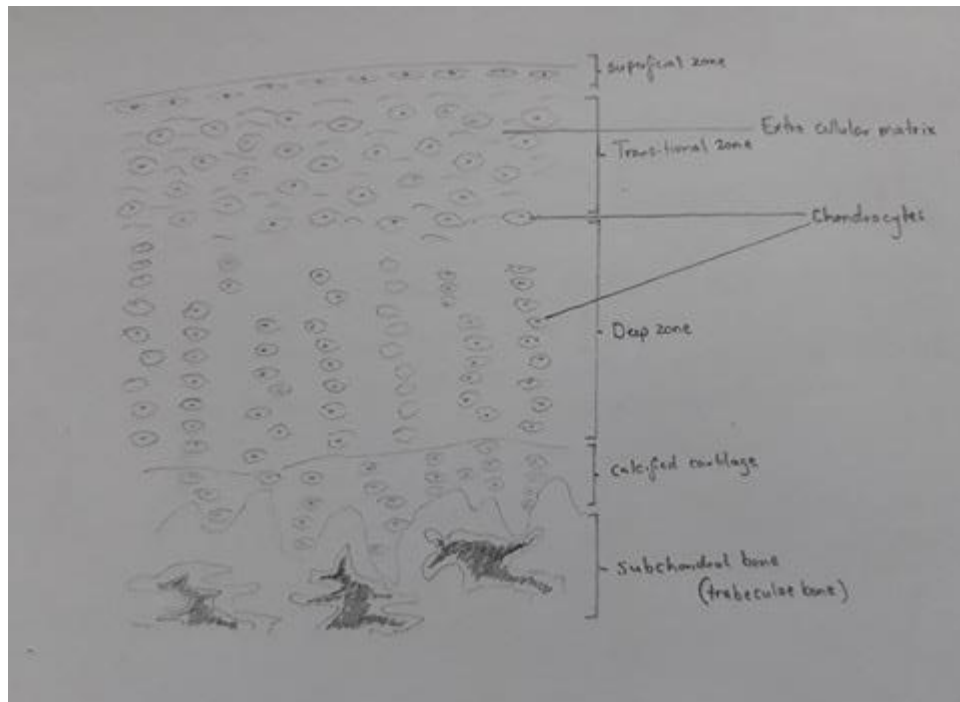 superficial zone
Extra cellular matrix
Transitional zone
Chondrocytes
Deep zone
calcified cartilage
subchondral bone
(trabeculae bone)